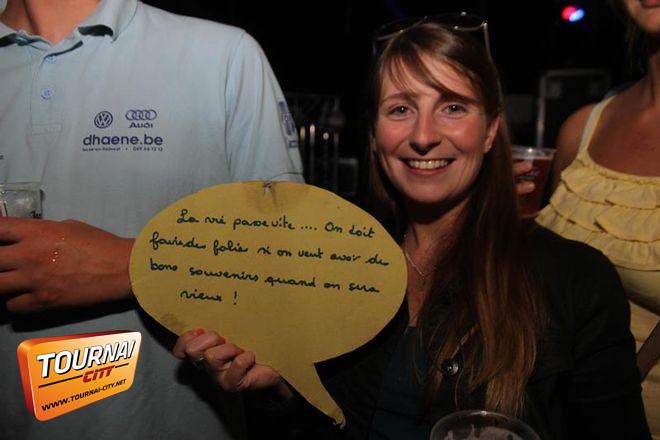 Audi
dhaene.be
La vie passe vite .... On doit
faire des folies si on veut avoir des
bons souvenirs quand on sera
vieux !
TOURNAI
CITY
WWW.TOURNAI-CITY.NET